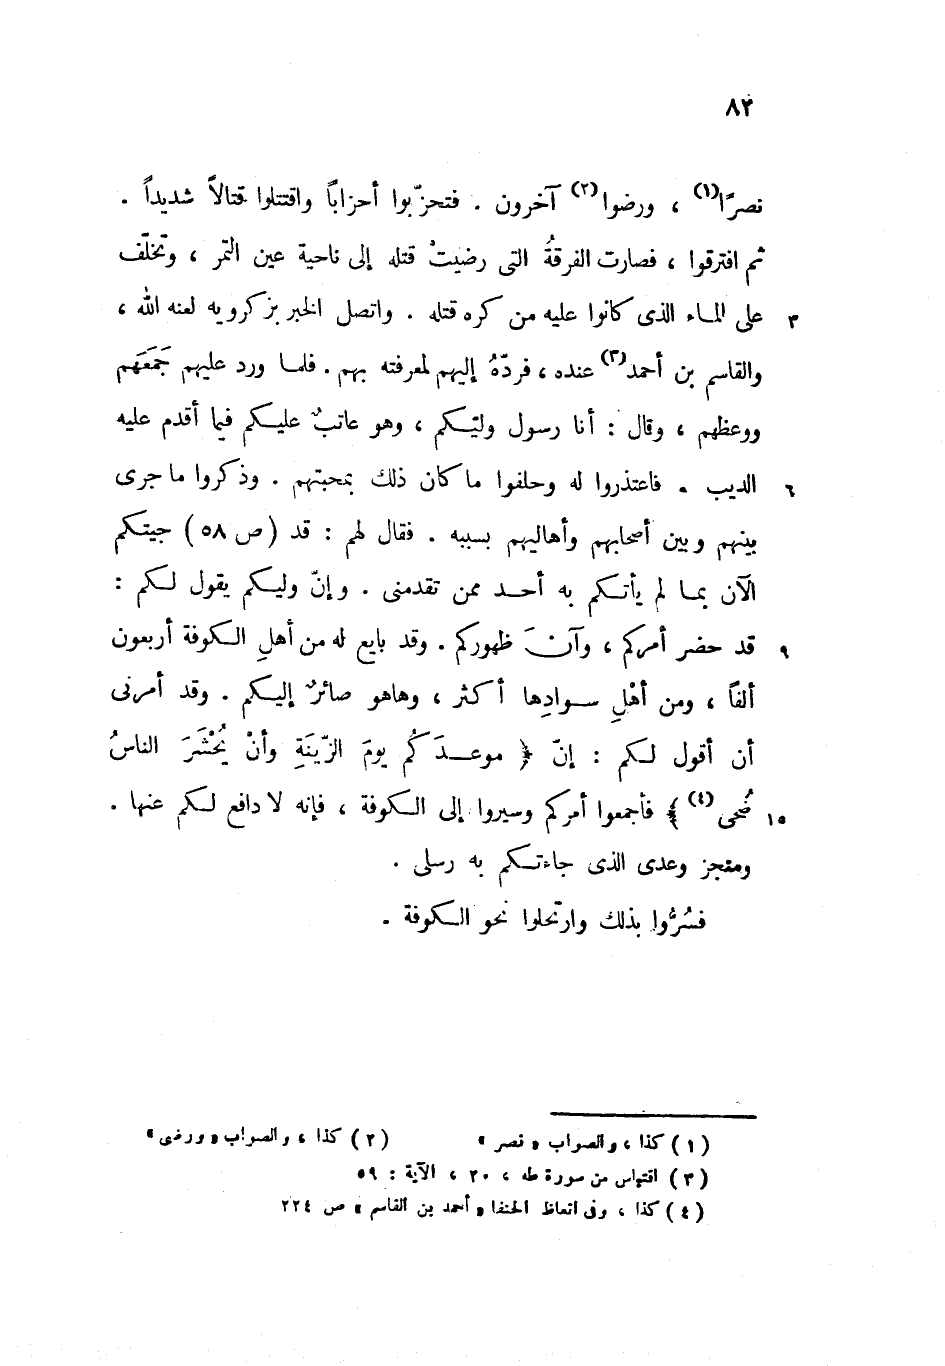 ٨٢
نصرًا(١) ، ورضوا(٢) آخرون . فتحزّبوا أحزاباً واقتتلوا قتالاً شديداً .
ثم افترقوا ، فصارت الفرقةُ التى رضيتْ قتله إلى ناحية عين التمر ، وتخلّف
٣ على الماء الذى كانوا عليه من كره قتله . واتصل الخبر بزكرويه لعنه الله ،
والقاسم بن أحمد(٣) عنده ، فردّهُ إليهم لمعرفته بهم . فلما ورد عليهم جَمَعَهم
ووعظهم ، وقال : أنا رسول وليّكم ، وهو عاتبٌ عليكم فيما أقدم عليه
٦ الديب . فاعتذروا له وحلفوا ما كان ذلك بمحبتهم . وذكروا ما جرى
بينهم وبين أصحابهم وأهاليهم بسببه . فقال لهم : قد (ص ٥٨) جيتكم
الآن بما لم يأتكم به أحد ممن تقدمنى . وإنّ وليكم يقول لكم :
٩ قد حضر أمركم ، وآنَ ظهوركم . وقد بايع له من أهلِ الكوفة أربعون
ألفاً ، ومن أهْلِ سوادِها أكثر ، وهاهو صائرٌ إليكم . وقد أمرنى
أن أقول لكم : إنّ ﴿ موعدَكُم يومَ الزّينَةِ وأنْ يُحْشَرَ الناسُ
١٥ ضُحى(٤) ﴾ فأجمعوا أمركم وسيروا إلى الكوفة ، فإنه لا دافع لكم عنها .
ومنجز وعدى الذى جاءتكم به رسلى .
فسُرُّوا بذلك وارتحلوا نحو الكوفة .
(١) كذا ، والصواب « نصر » (٢) كذا ، والصواب « ورضى »
(٣) اقتباس من سورة طه ، ٢٠ ، الآية : ٥٩
(٤) كذا ، وفى اتعاظ الحنفا « أحمد بن القاسم » ص ٢٢٤